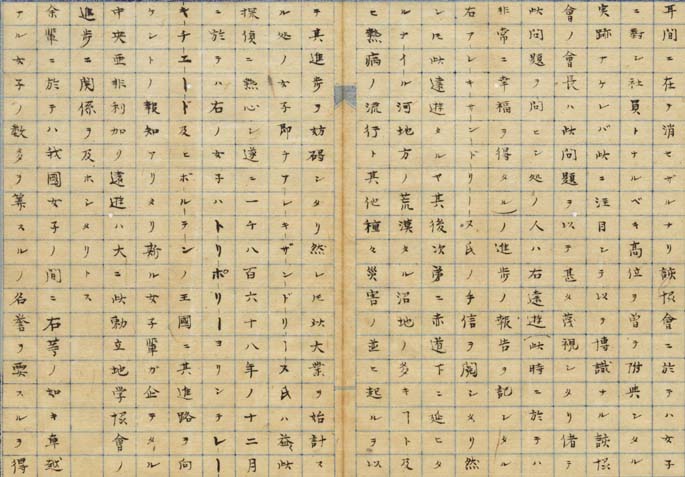 耳間ニ在ヲ消セザルナリ該協會ニ於テハ女子
ニ對シ社員トナルベキ高位ヲ曽テ附與シタル
実跡ナケレバ此ニ注目シテ以テ博識ナル該協
會ノ會長ハ此問題ヲ以テ甚タ蔑視シタリ偖テ
此問題ヲ問ヒシ処ノ人ハ右遠遊此時ニ於テハ
非常ニ幸福ヲ得タルノ進歩ノ報告ヲ記シタル
右アレキサンードリース氏ノ手信ヲ閲シタリ然
シ𪜈此遠遊タルヤ其後次第ニ赤道下ニ延ヒタ
ルナイル河地方ノ荒漠タル沼地ノ多キヿト及
ヒ熱病ノ流行ト其他種々災害ノ並ヒ起ルヲ以
テ其進歩ヲ妨碍シタリ然レ𪜈以大業ヲ始計ス
ル処ノ女子即チアレキザンードリース氏ハ益此
探偵ニ熱心シ遂ニ一千八百六十八年ノ十二月
ニ於テハ右ノ女子ハトリポリーヨリシテレー
キチエード及ヒボルーテンノ王國ニ其進路ヲ向
ケシトノ報知アリタリ斯ル女子輩ガ企テタル
中央亜非利加リ遠遊ハ大ニ此勳立地学協會ノ
進歩ニ関係ヲ及ホシタリトス
余輩ニ於テハ我國女子ノ間ニ右等ノ如キ卓越
ナル女子ノ数多ヲ算スルノ名誉ヲ要スルヲ得